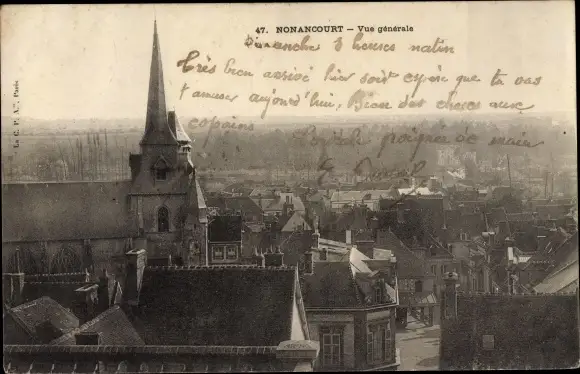 47. NONANCOURT – Vue générale
Dimanche 8 heures matin
très bien arrivé hier soit espère que ta vas
t'amuser aujourd'hui, Bien des choses aux
copains Cordiale poignée de main